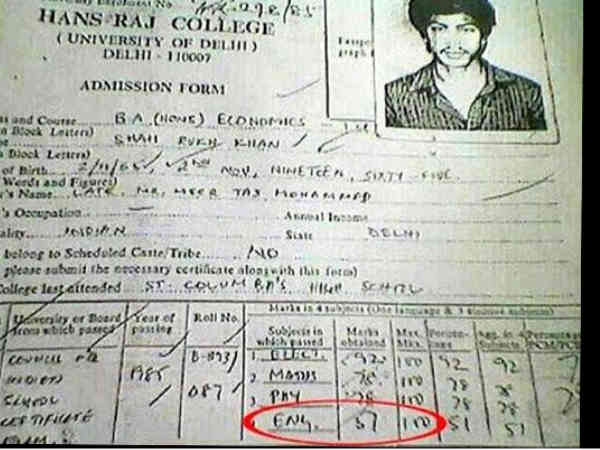 Enrolment No.
HANS RAJ COLLEGE
( UNIVERSITY OF DELHI )
DELHI - 110007
ADMISSION FORM
and Course B.A. (HONS) ECONOMICS
Block Letters)
SHAH RUKH KHAN
Block Letters)
of Birth 2/11/65, 2ND NOV, NINETEEN SIXTY FIVE
Words and Figures)
's Name LATE. MR. MEER TAJ MOHAMMED
's Occupation Annual Income
INDIAN State DELHI
belong to Scheduled Caste/Tribe NO
please submit the necessary certificate alongwith this form)
College last attended ST. COLUMBA'S HIGH SCHOOL
Marks in 4 subjects (One language & 3 elective subjects)
University or Board from which passed Year of passing Roll No. Subjects in which passed Marks obtained Max. Marks
COUNCIL 1. ELECT. 92 100 92 92
INDIAN 1985 2. MATHS 78 100 78 78
SCHOOL 087 3. PHY 78 100 78 78
CERTIFICATE ENG. 51 100 51 51